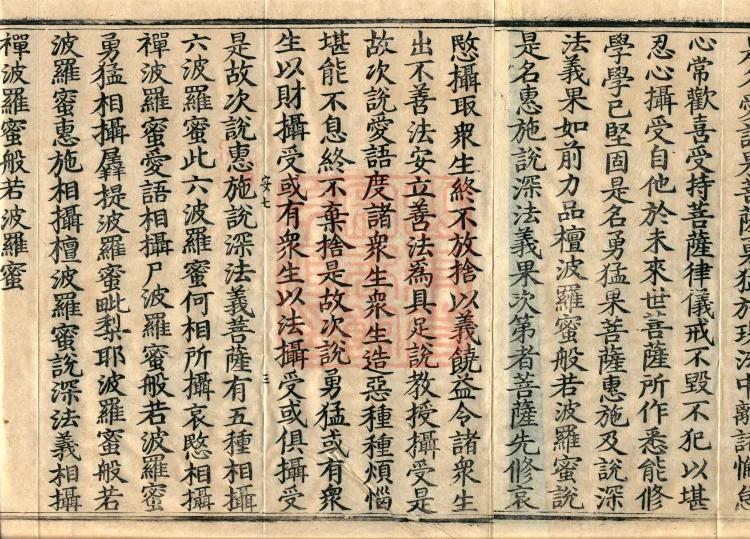 菩薩勇猛於現法中離諸懈怠
心常歡喜受持菩薩律儀戒不毀不犯以堪
忍心攝受自他於未來世菩薩所作悉能修
學學已堅固是名勇猛果菩薩惠施及說深
法義果如前力品檀波羅蜜般若波羅蜜說
是名惠施說深法義果次第者菩薩先修哀
愍攝取衆生終不放捨以義饒益令諸衆生
出不善法安立善法為具足說教授攝受是
故次說愛語度諸衆生衆生造惡種種煩惱
堪能不息終不棄捨是故次說勇猛或有衆
生以財攝受或有衆生以法攝受或俱攝受
安七 三
是故次說惠施說深法義菩薩有五種相攝
六波羅蜜此六波羅蜜何相所攝哀愍相攝
禪波羅蜜愛語相攝尸波羅蜜般若波羅蜜
勇猛相攝羼提波羅蜜毗梨耶波羅蜜般若
波羅蜜惠施相攝檀波羅蜜說深法義相攝
禪波羅蜜般若波羅蜜